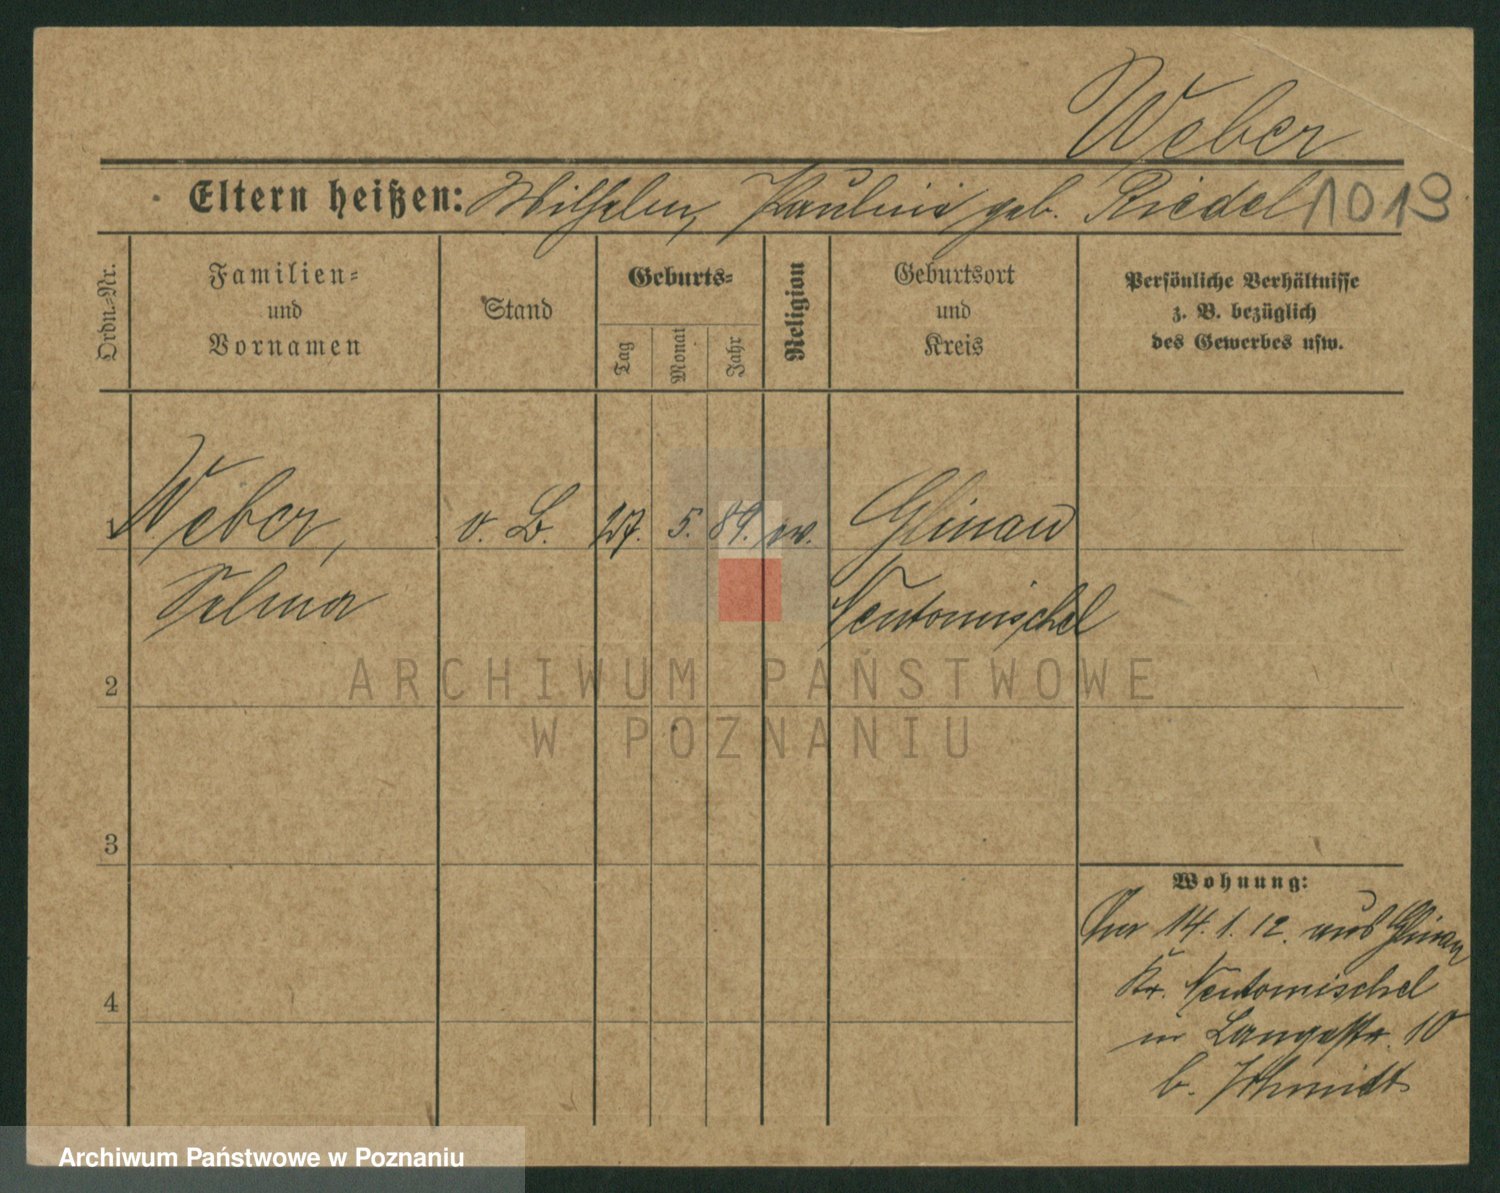 Weber
Eltern heißen: Wilhelm, Paulini geb. Riedel 1013
Ordn.-Nr.
Familien-
und
Vornamen
Stand
Geburts-
Tag
Monat
Jahr
Religion
Geburtsort
und
Kreis
Persönliche Verhältnisse
z. B. bezüglich
des Gewerbes usw.
1 Weber, o. B. 27. 5. 89. ev. Glinau
Selma Neutomischel
ARCHIWUM PAŃSTWOWE
W POZNANIU
2
3
4
Wohnung:
14. 1. 12. aus Glinau
Kr. Neutomischel
in Langestr. 10
b. Schmidt
Archiwum Państwowe w Poznaniu